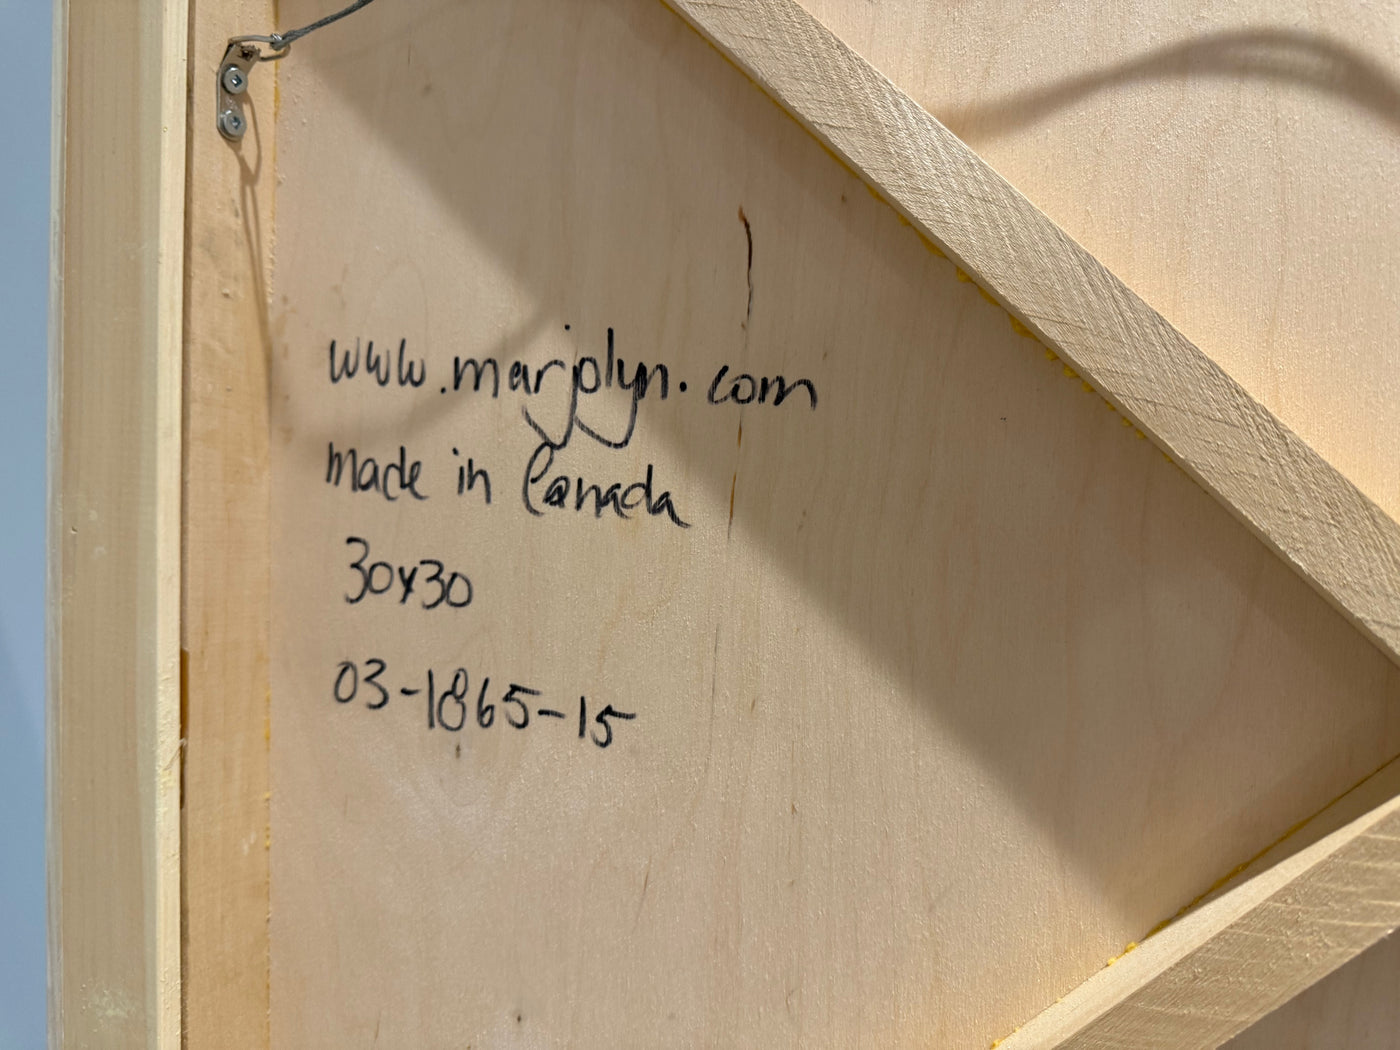 www.marjolyn.com
made in Canada
30x30
03-1865-15